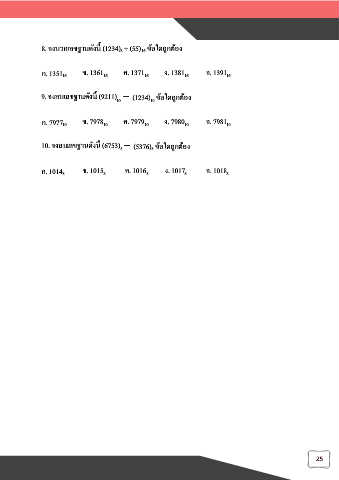 8. จงบวกเลขฐานดังนี้ (1234)₈ + (55)₁₆ ข้อใดถูกต้อง
ก. 1351₁₆ ข. 1361₁₆ ค. 1371₁₆ ง. 1381₁₆ จ. 1391₁₆
9. จงลบเลขฐานดังนี้ (9211)₁₀ − (1234)₁₀ ข้อใดถูกต้อง
ก. 7977₁₀ ข. 7978₁₀ ค. 7979₁₀ ง. 7980₁₀ จ. 7981₁₀
10. จงลบเลขฐานดังนี้ (6753)₈ − (5376)₈ ข้อใดถูกต้อง
ก. 1014₈ ข. 1015₈ ค. 1016₈ ง. 1017₈ จ. 1018₈
25